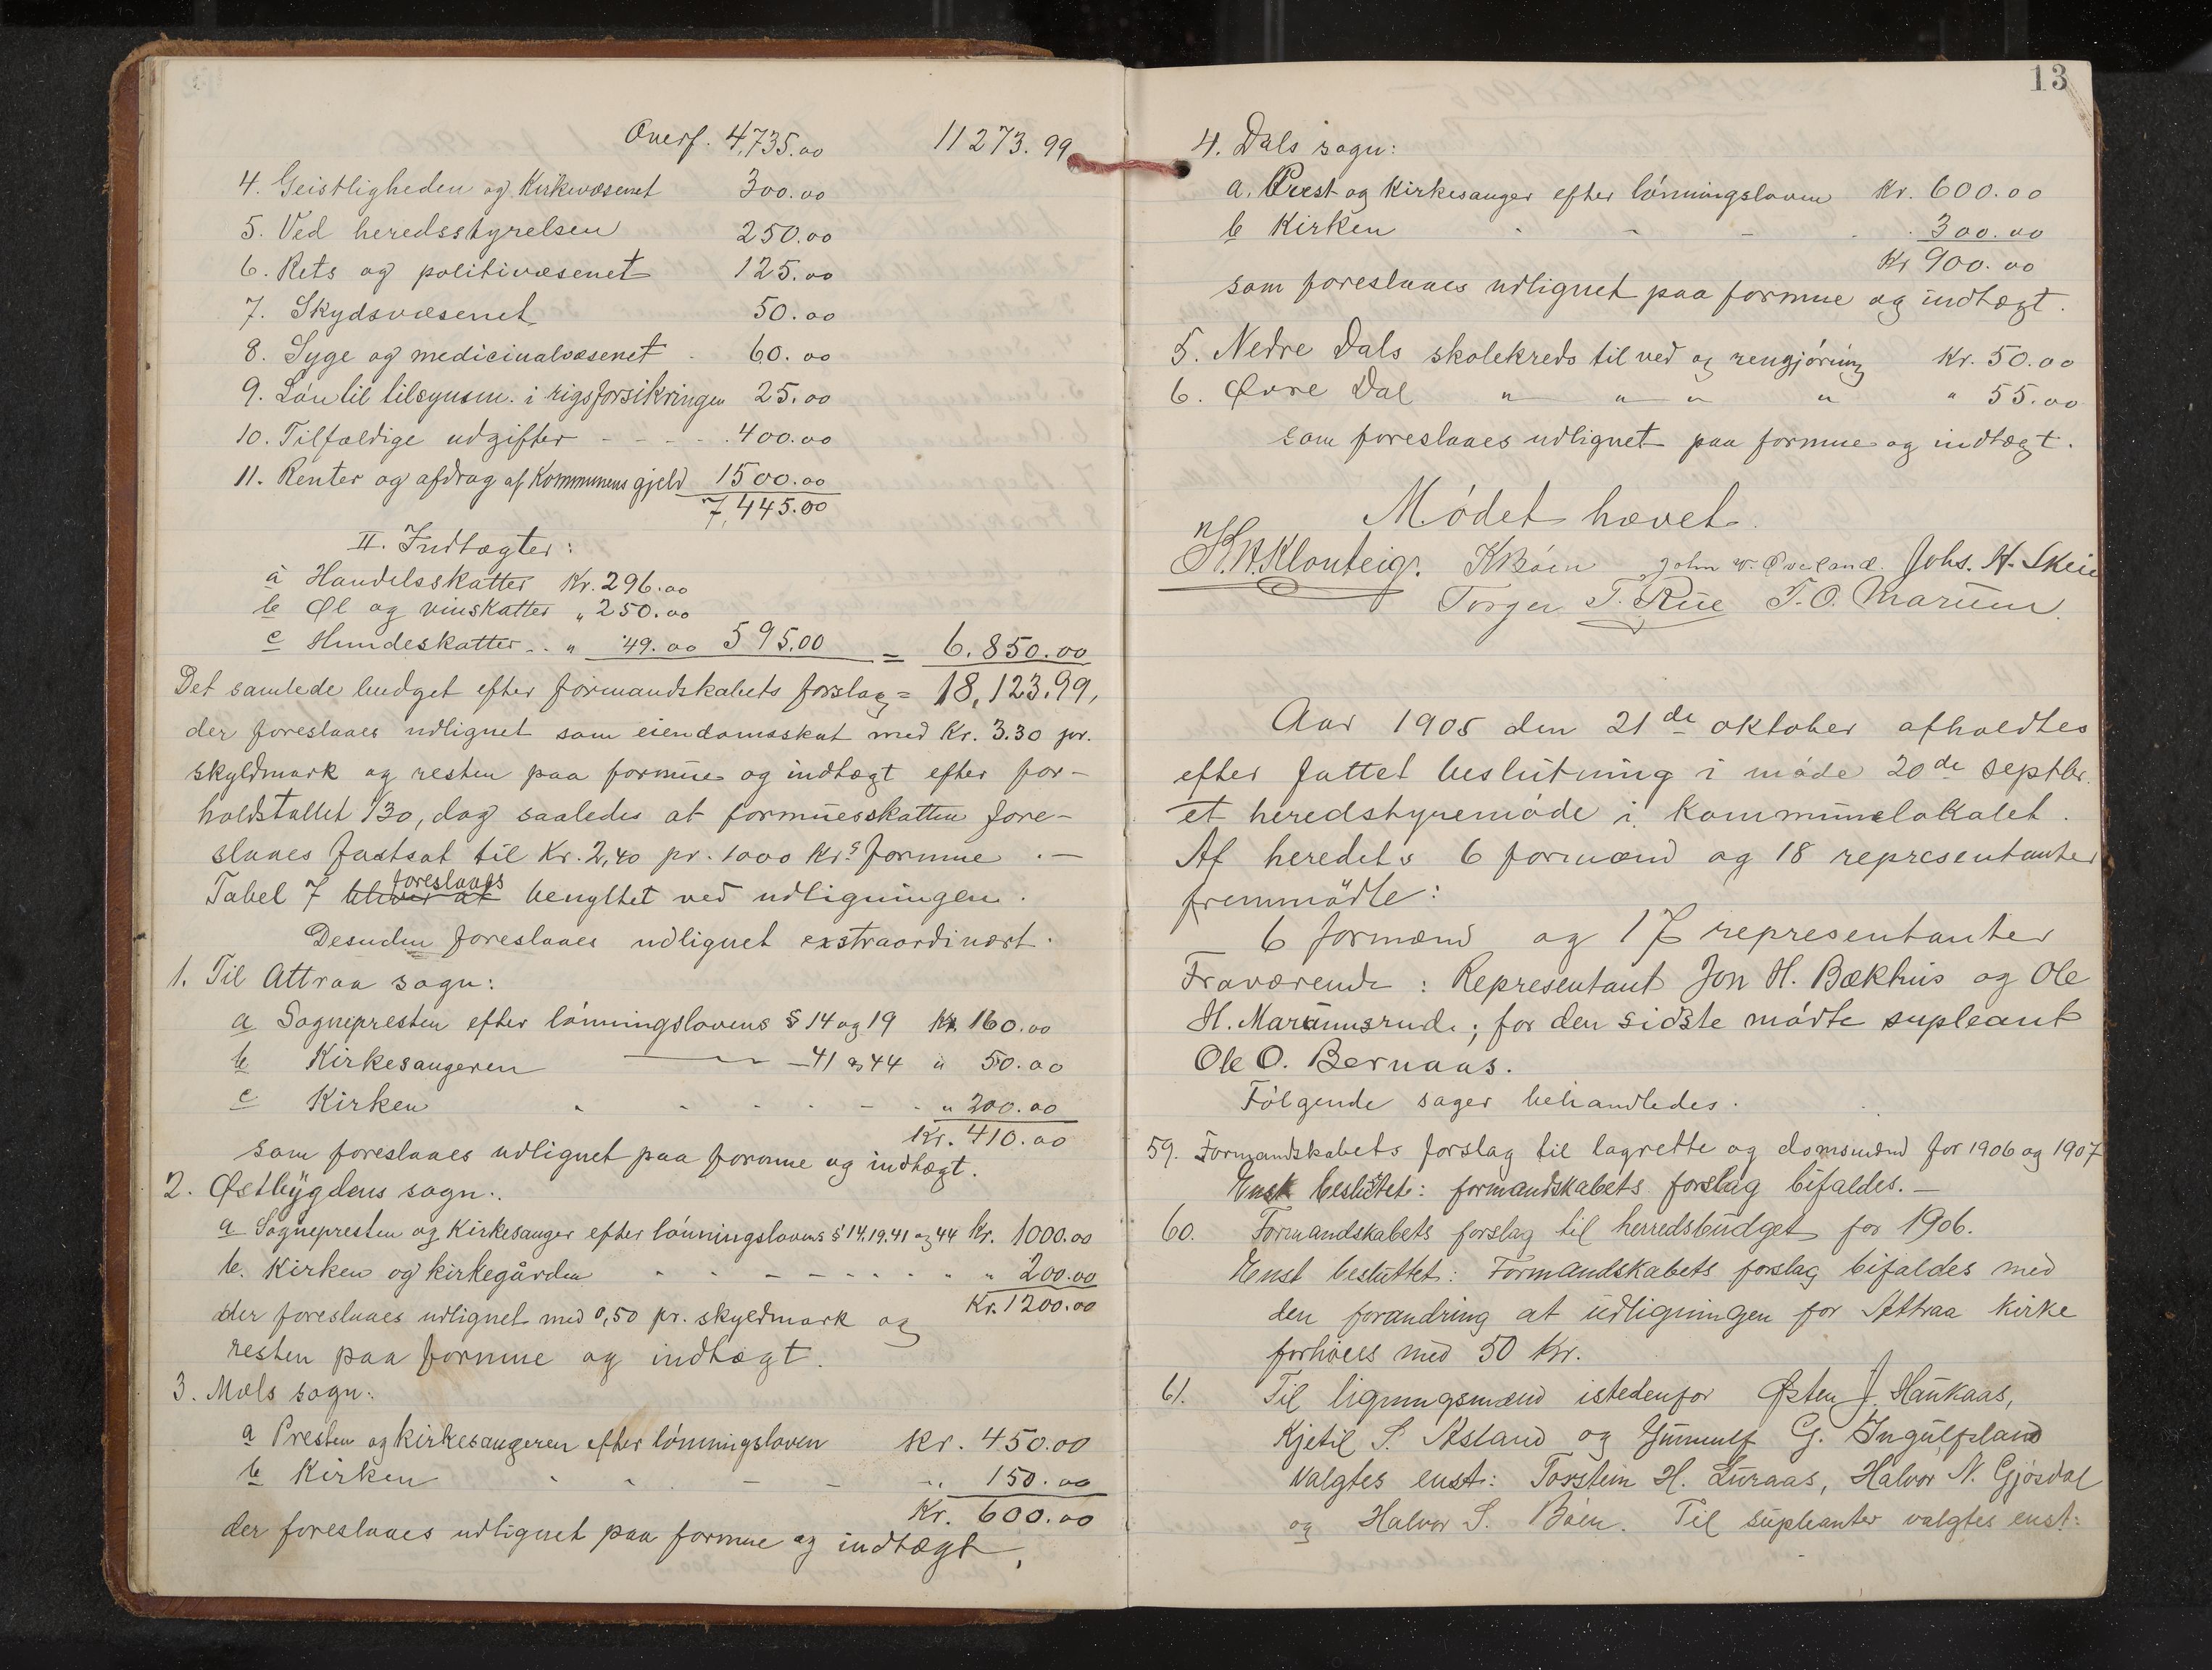 Overf. 4,735.00 11273.99
4. Geistligheden og Kirkevæsenet 300.00
5. Ved heredsstyrelsen 250.00
6. Rets og politivæsenet 125.00
7. Skydsvæsenet 50.00
8. Syge og medicinalvæsenet 60.00
9. Løn til tilsynsm. i rigsforsikringen 25.00
10. Tilfældige udgifter - - - - 400.00
11. Renter og afdrag af Kommunens gjeld 1500.00
7,445.00
II. Indtægter:
a Handelsskatter Kr. 296.00
b Øl og vinskatter " 250.00
c Hundeskatter - . " 49.00 595.00 = 6.850.00
Det samlede budget efter formandskabets forslag = 18,123.99,
der foreslaaes udlignet som eiendomsskat med Kr. 3.30 pr.
skyldmark og resten paa formue og indtægt efter for-
holdstallet 1/30, dog saaledes at formuesskatten fore-
slaaes fastsat til Kr. 2,40 pr. 1000 Krs formue . —
foreslaaes
Tabel 7 bliver at benyttet ved udligningen.
Desuden foreslaaes udlignet exstraordinært.
1. Til Attraa sogn:
a Sognepresten efter lønningslovens § 14 og 19 Kr. 160.00
b Kirkesangeren — — 41 og 44 " 50.00
c Kirken " 200.00
Kr. 410.00
som foreslaaes udlignet paa formue og indtægt.
2. Østbygdens sogn.
a Sognepresten og Kirkesanger efter lønningslovens § 14.19.41 og 44 Kr. 1000.00
b. Kirken og kirkegården " 200.00
Kr. 1200.00
der foreslaaes udlignet med 0,50 pr. skyldmark og
resten paa formue og indtægt.
3. Mæls sogn.
a Presten og kirkesangeren efter lønningsloven Kr. 450.00
b Kirken 150.00
Kr. 600.00
der foreslaaes udlignet paa formue og indtægt,
13
4. Dals sogn:
a. Prest og Kirkesanger efter lønningsloven Kr. 600.00
b Kirken 300.00
Kr 900.00
som foreslaaes udlignet paa formue og indtægt.
5. Nedre Dals skolekreds til ved og rengjøring Kr. 50.00
6. Øvre Dal " " " " " 55.00
som foreslaaes udlignet paa formue og indtægt.
Mødet hævet.
H. H. Klonteig. K Bøen John W. Øverland. Johs. H. Skeie
Torger T. Rue T. O. Marum.
Aar 1905 den 21de oktober afholdtes
efter fattet beslutning i møde 20de septbr.
et heredstyremøde i kommunelokalet.
Af heredets 6 formænd og 18 representanter
fremmødte:
6 formænd og 17 representanter
Fraværende: Representant Jon H. Bækhus og Ole
H. Marumsrud.; for den sidste mødte supleant
Ole O. Bernaas.
Følgende sager behandledes.
59. Formandskabets forslag til lagrette og domsmænd for 1906 og 1907
Enst besluttet: formandskabets forslag bifaldes. —
60. Formandskabets forslag til herredsbudget for 1906.
Enst besluttet: Formandskabets forslag bifaldes med
den forandring at udligningen for Attraa kirke
forhøies med 50 Kr.
61. Til ligningsmænd istedenfor Østen J. Haukaas,
Kjetil S. Aasland og Gunnulf G. Ingulfsland
valgtes enst: Torstein H. Luraas, Halvor N. Gjøsdal
og Halvor S. Bøen. Til supleanter valgtes enst: